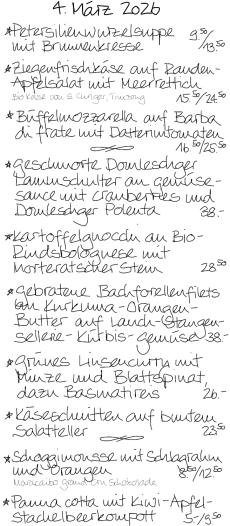 4. März 2026
*Petersilienwurzelsuppe 9.50/
mit Brunnenkresse 13.50
*Ziegenfrischkäse auf Randen-
Apfelsalat mit Meerrettich
Bio Käse von S. 15.50/24.50
*Büffelmozzarella auf Barba
di frate mit Datterintomaten
16.50/25.50
*geschmorte Domleschger
Lammschulter an gemüse-
sauce mit cranberries und
Domleschger Polenta 38.-
*Kartoffelgnocchi an Bio-
Rindsbolognese mit
Morteratscher Stein 28.50
*gebratene Bachforellenfilets
an Kurkuma-Orangen-
Butter auf Lauch-Stangen-
sellerie-Kürbis-gemüse 38-
*grünes Linsencurry mit
Minze und Blattspinat,
dazu Basmatireis 26.-
*Käseschnitten auf buntem
Salatteller 23.50
*Schoggimousse mit Schlagrahm
und Orangen 8.50/12.50
Maracaibo grand cru Schokolade
*Panna cotta mit Kiwi-Apfel-
Stachelbeerkompott 5.-/9.50